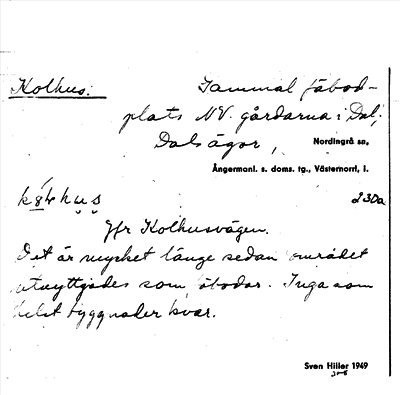 Kolhus.
Gammal fäbod-
plats NV. gårdarna i Dal,
Dals ägor, Nordingrå sn,
Ångermanl. s. doms. tg., Västernorrl, l.
23Da
Jfr Kolhusvägen.
Det är mycket länge sedan området
utnyttjades som fäbodar. Inga som
helst byggnader kvar.
Sven Hiller 1949